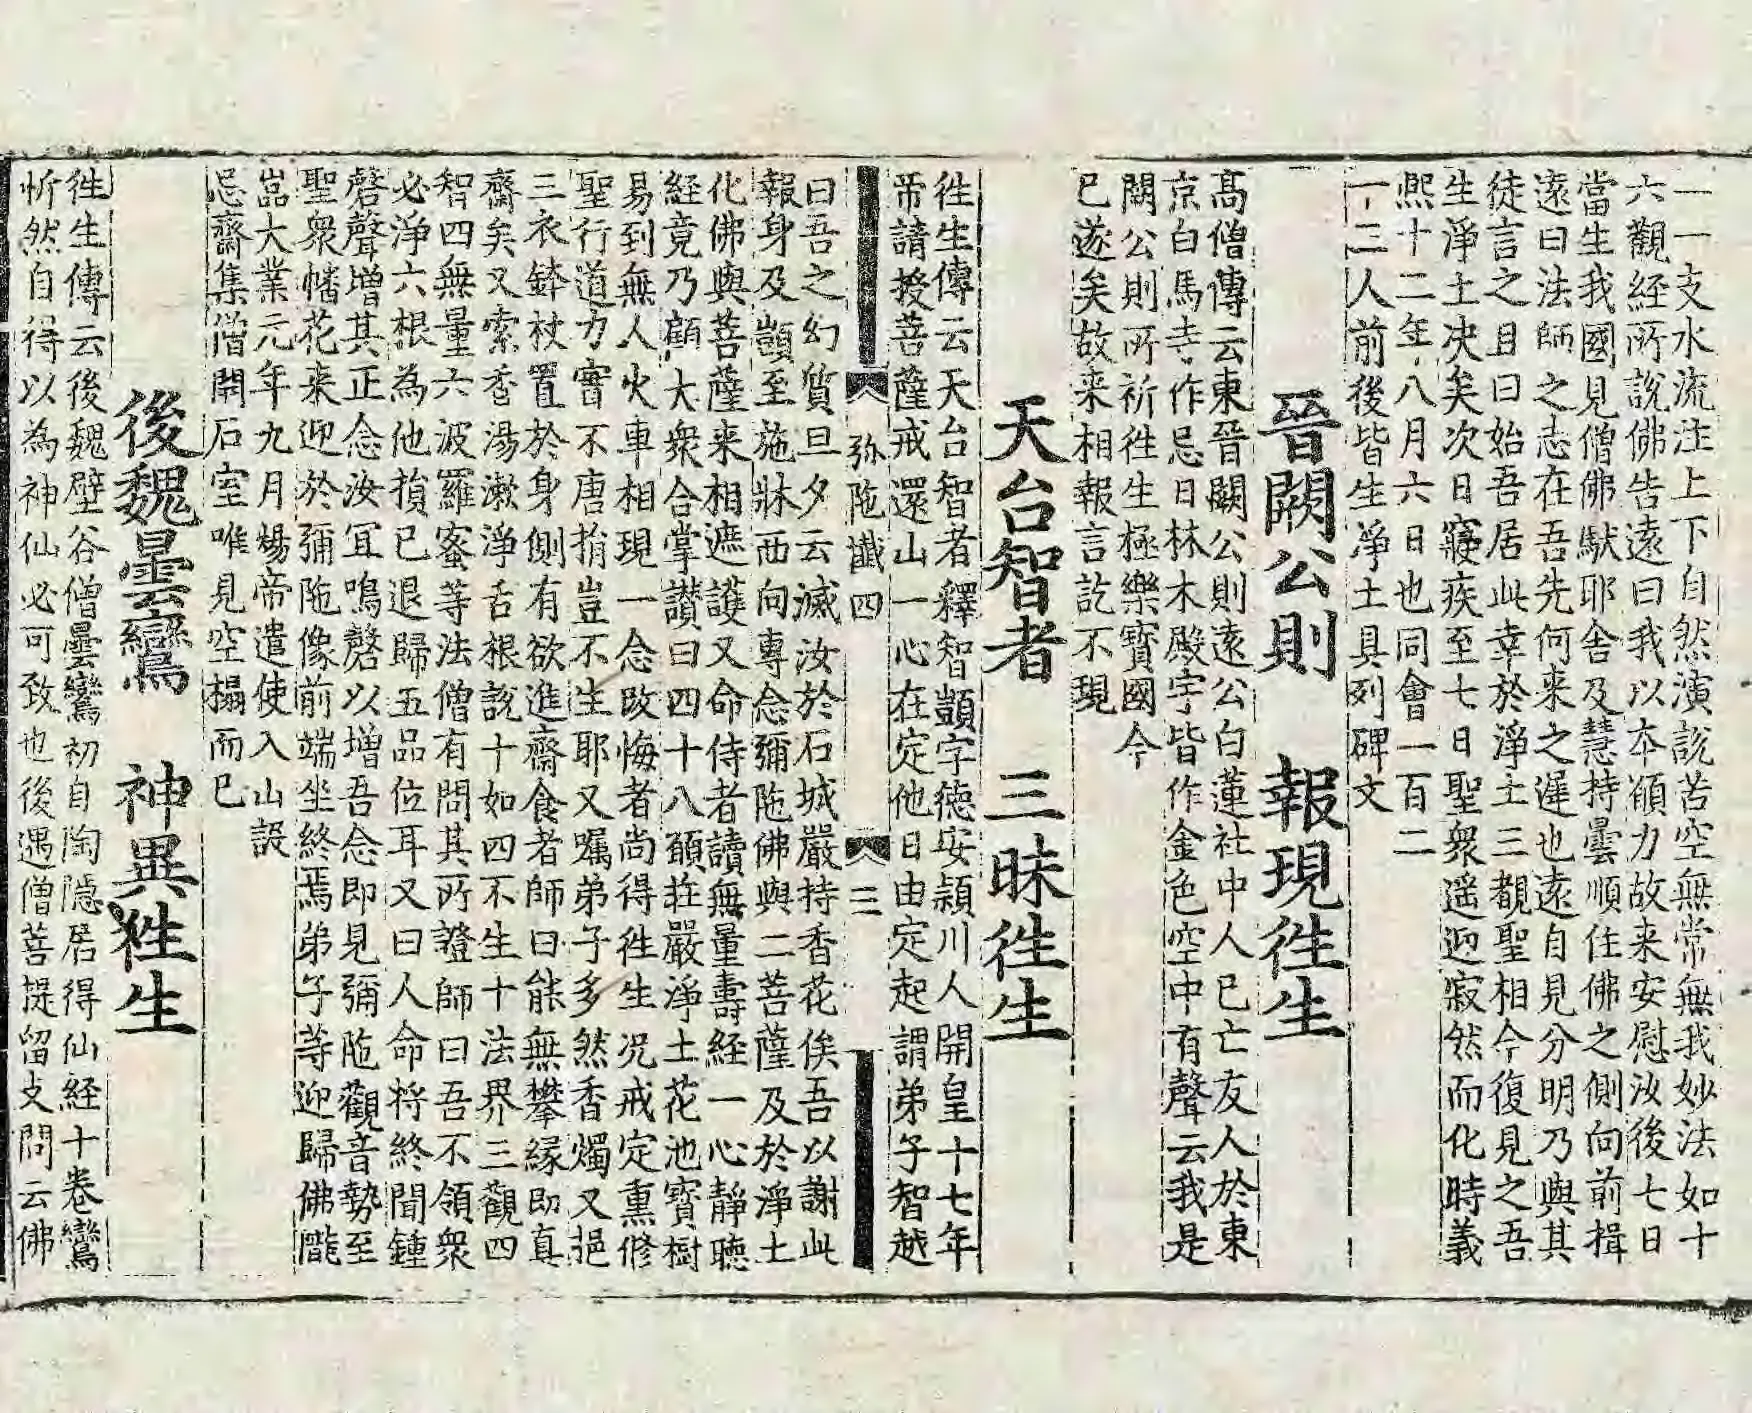 一一支水流注上下自然演說苦空無常無我妙法如十
六觀経所說佛告遠曰我以本願力故来安慰汝後七日
當生我國見僧佛馱耶舍及慧持曇順在佛之側向前揖
遠曰法師之志在吾先何来之遲也遠自見分明乃與其
徒言之且曰始吾居此幸於淨土三覩聖相今復見之吾
生淨土决矣次日寢疾至七日聖衆遥迎寂然而化時義
熈十二年八月六日也同會一百二
十三人前後皆生淨土具列碑文
晉闕公則　報現徃生
髙僧傳云東晉闕公則遠公白蓮社中人已亡友人於東
京白馬寺作忌日林木殿宇皆作金色空中有聲云我是
闕公則所祈徃生極樂寶國今
已遂矣故来相報言訖不現
天台智者　三昧徃生
徃生傳云天台智者釋智顗字德安潁川人開皇十七年
帝請授菩薩戒還山一心在定他日由定起謂弟子智越
弥陁懺四　三
曰吾之幻質旦夕云滅汝於石城嚴持香花俟吾以謝此
報身及顗至施牀西向專念彌陁佛與二菩薩及於淨土
化佛與菩薩来相遮護又命侍者讀無量壽経一心靜聽
経竟乃顧大衆合掌讃曰四十八願莊嚴淨土花池寶樹
易到無人火車相現一念改悔者尚得徃生况戒定熏修
聖行道力實不唐捐豈不生耶又囑弟子多然香燭又挹
三衣鉢杖置於身側有欲進齋食者師曰能無攀縁即真
齋矣又索香湯漱淨舌根說十如四不生十法界三觀四
智四無量六波羅蜜等法僧有問其所證師曰吾不領衆
必淨六根為他損已退歸五品位耳又曰人命將終聞鍾
磬聲増其正念汝冝鳴磬以増吾念即見彌陁觀音勢至
聖衆幡花来迎於彌陁像前端坐終焉弟子等迎歸佛隴
嵓大業元年九月煬帝遣使入山設
忌齋集僧開石室唯見空榻而已
後魏曇鸞　神異徃生
徃生傳云後魏壁谷僧曇鸞初自陶隱居得仙経十卷鸞
忻然自得以為神仙必可致也後遇僧菩提留支問云佛